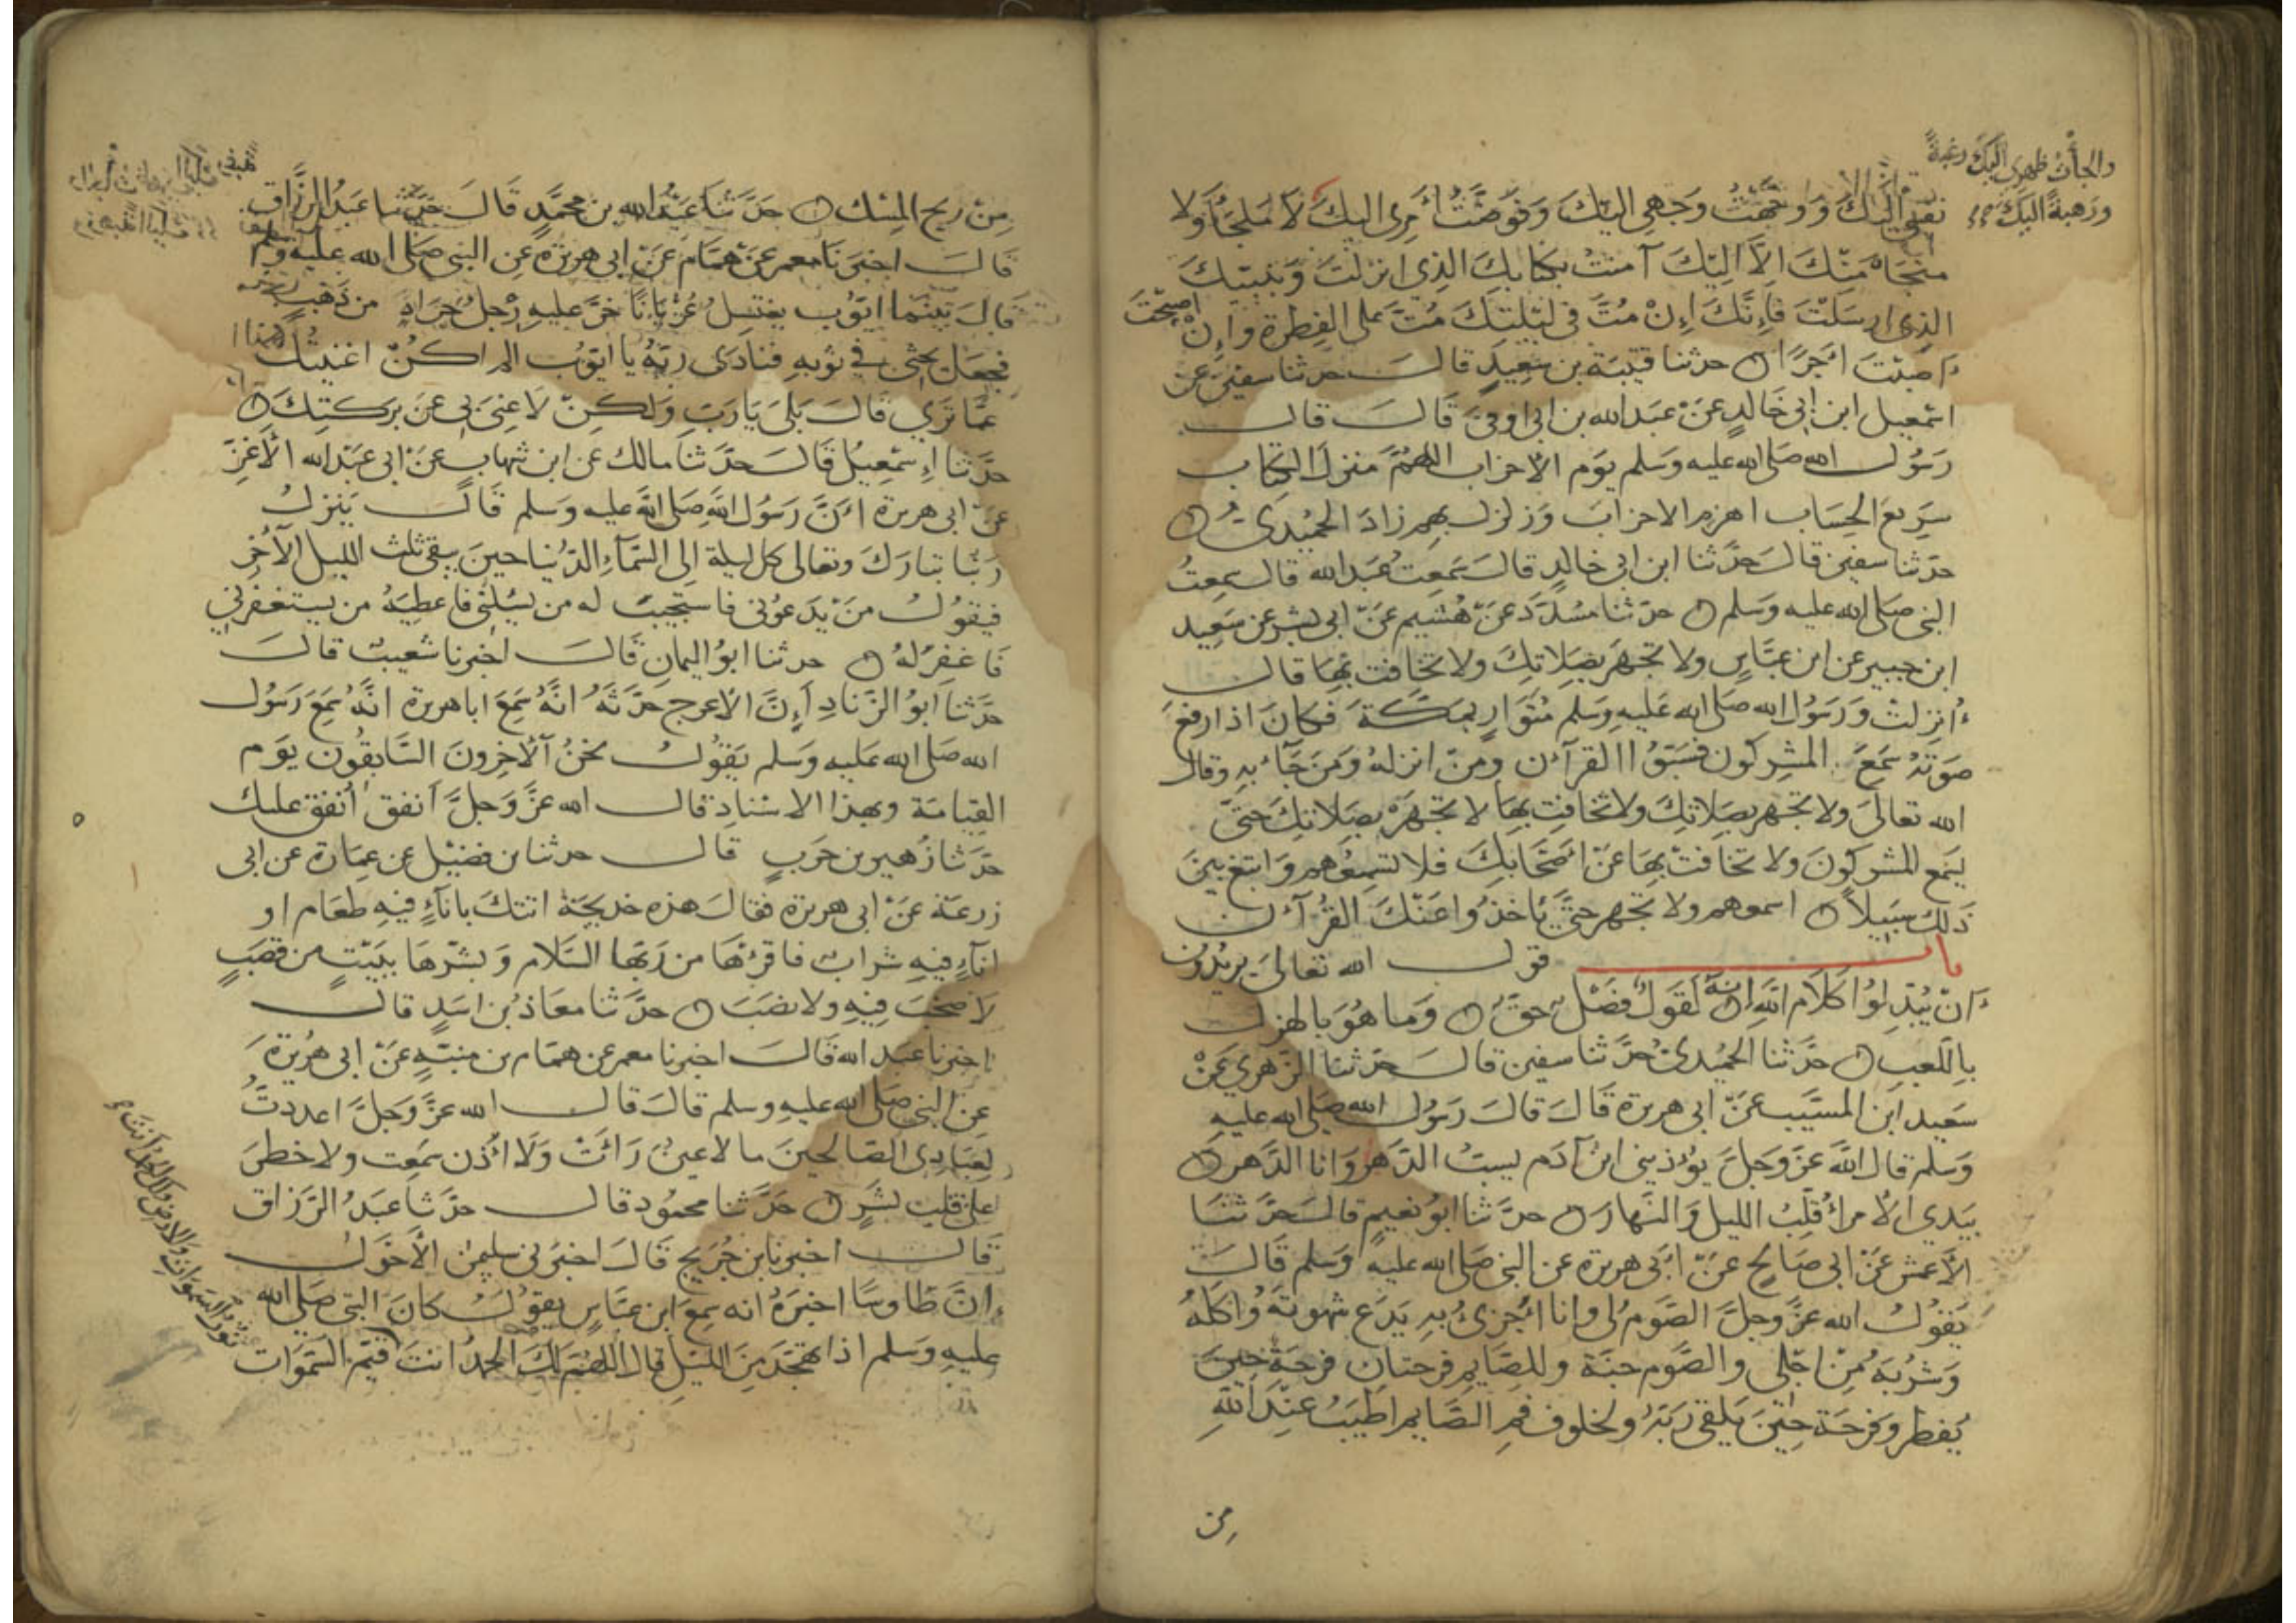 والجأت ظهري اليك رغبة
ورهبة اليك
نفسي اليك ووجهت وجهي اليك وفوضت أمري اليك لا ملجأ ولا
منجاه منك الا اليك آمنت بكتابك الذي انزلت وبنبيك
الذي ارسلت فإنك إن مت في ليلتك مت على الفطرة وإن أصبحت
أصبت اجرا حدثنا قتيبة بن سعيد قال حدثنا سفين عن
اسمعيل ابن ابي خالد عن عبد الله بن ابي اوفى قال قال
رسول الله صلى الله عليه وسلم يوم الاحزاب اللهم منزل الكتاب
سريع الحساب اهزم الاحزاب وزلزل بهم زاد الحميدي
حدثنا سفين قال حدثنا ابن ابي خالد قال سمعت عبد الله قال سمعت
النبي صلى الله عليه وسلم حدثنا مسدد عن هشيم عن ابي بشر عن سعيد
ابن جبير عن ابن عباس ولا تجهر بصلاتك ولا تخافت بها قال
أنزلت ورسول الله صلى الله عليه وسلم متوار بمكة فكان اذا رفع
صوته سمع المشركون فسبوا القرآن ومن انزله ومن جاء به وقال
الله تعالى ولا تجهر بصلاتك ولا تخافت بها لا تجهر بصلاتك حتى
يسمع المشركون ولا تخافت بها عن أصحابك فلا تسمعهم وابتغ بين
ذلك سبيلا اسمعهم ولا تجهر حتى يأخذوا عنك القرآن
باب قول الله تعالى يريدون
أن يبدلوا كلام الله انه لقول فصل حق وما هو بالهزل
باللعب حدثنا الحميدي حدثنا سفين قال حدثنا الزهري عن
سعيد ابن المسيب عن ابي هريرة قال قال رسول الله صلى الله عليه
وسلم قال الله عز وجل يؤذيني ابن آدم يسب الدهر وانا الدهر
بيدي الأمر أقلب الليل والنهار حدثنا ابو نعيم قال حدثنا
الأعمش عن ابي صالح عن أبي هريرة عن النبي صلى الله عليه وسلم قال
يقول الله عز وجل الصوم لي وانا أجزي به يدع شهوته وأكله
وشربه من اجلي والصوم جنة وللصايم فرحتان فرحة حين
يفطر وفرحة حين يلقى ربه ولخلوف فم الصايم اطيب عند الله
من
من ريح المسك حدثنا عبد الله بن محمد قال حدثنا عبد الرزاق
قال اخبرنا معمر عن همام عن ابي هريرة عن النبي صلى الله عليه وسلم
قال بينما ايوب يغتسل عريانا خر عليه رجل جراد من ذهب
فجعل يحثي في ثوبه فنادى ربه يا ايوب الم اكن اغنيتك
عما تري قال بلى يا رب ولكن لا غنى بي عن بركتك
حدثنا إسمعيل قال حدثنا مالك عن ابن شهاب عن ابي عبد الله الأغر
عن ابي هريرة أن رسول الله صلى الله عليه وسلم قال ينزل
ربنا تبارك وتعالى كل ليلة إلى السماء الدنيا حين يبقى ثلث الليل الآخر
فيقول من يدعوني فاستجيب له من يسئلني فاعطيه من يستغفرني
فاغفر له حدثنا ابو اليمان قال اخبرنا شعيب قال
حدثنا ابو الزناد أن الأعرج حدثه انه سمع ابا هريرة انه سمع رسول
الله صلى الله عليه وسلم يقول نحن الآخرون السابقون يوم
القيامة وبهذا الاسناد قال الله عز وجل أنفق أنفق عليك
حدثنا زهير بن حرب قال حدثنا بن فضيل عن عمارة عن ابي
زرعة عن ابي هريرة فقال هذه خديجة اتتك باناء فيه طعام او
اناء فيه شراب فاقرئها من ربها السلام وبشرها ببيت من قصب
لا صخب فيه ولا نصب حدثنا معاذ بن اسد قال
اخبرنا عبد الله قال اخبرنا معمر عن همام بن منبه عن ابي هريرة
عن النبي صلى الله عليه وسلم قال قال الله عز وجل اعددت
لعبادي الصالحين ما لا عين رأت ولا أذن سمعت ولا خطر
على قلب بشر حدثنا محمود قال حدثنا عبد الرزاق
قال اخبرنا بن جريج قال اخبرني سليمن الأحول
إن طاوسا اخبره انه سمع ابن عباس يقول كان النبي صلى الله
عليه وسلم اذا تهجد من الليل قال اللهم لك الحمد انت قيم السموات
نور السموات والارض ولك الحمد أنت